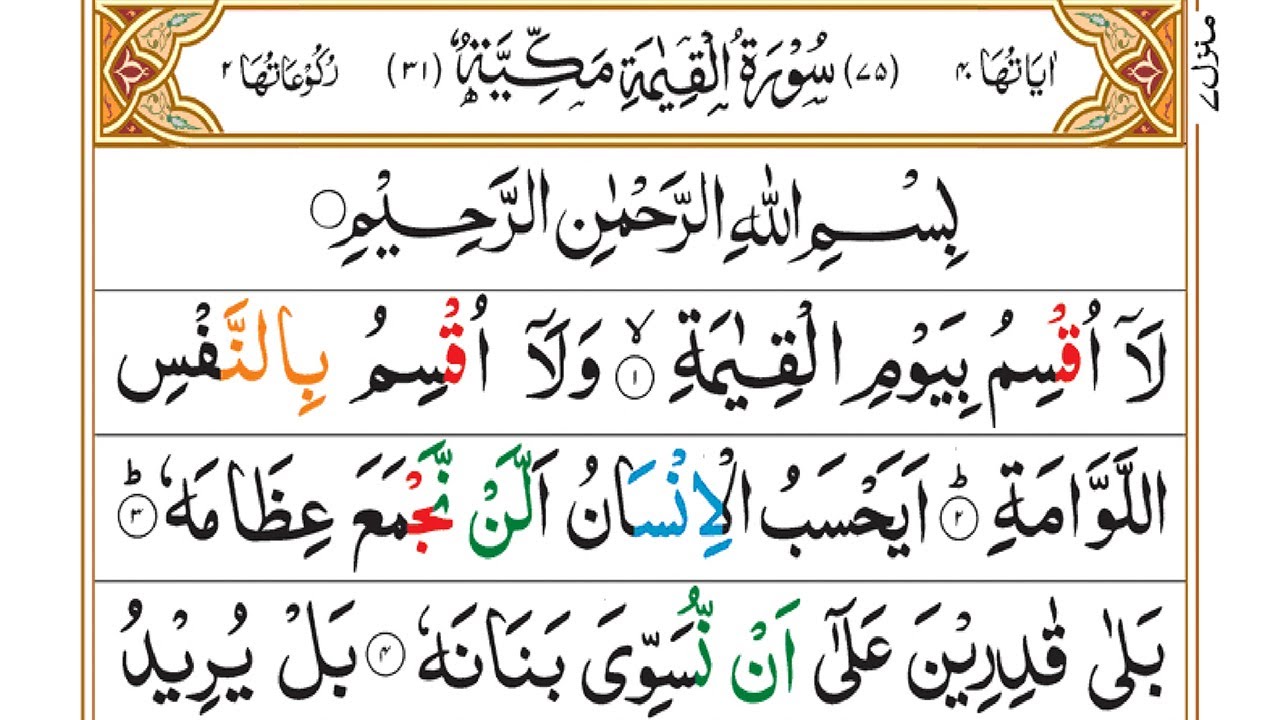 اٰيَاتُهَا ۴۰ (۷۵) سُوْرَةُ الْقِيٰمَةِ مَكِّيَّةٌ (۳۱) رُكُوْعَاتُهَا ۲
منزل ۷
بِسْمِ اللّٰهِ الرَّحْمٰنِ الرَّحِيْمِ
لَآ اُقْسِمُ بِيَوْمِ الْقِيٰمَةِ ۙ﴿۱﴾ وَلَآ اُقْسِمُ بِالنَّفْسِ
اللَّوَّامَةِ ؕ﴿۲﴾ اَيَحْسَبُ الْاِنْسَانُ اَلَّنْ نَّجْمَعَ عِظَامَهٗ ؕ﴿۳﴾
بَلٰى قٰدِرِيْنَ عَلٰٓى اَنْ نُّسَوِّىَ بَنَانَهٗ ﴿۴﴾ بَلْ يُرِيْدُ